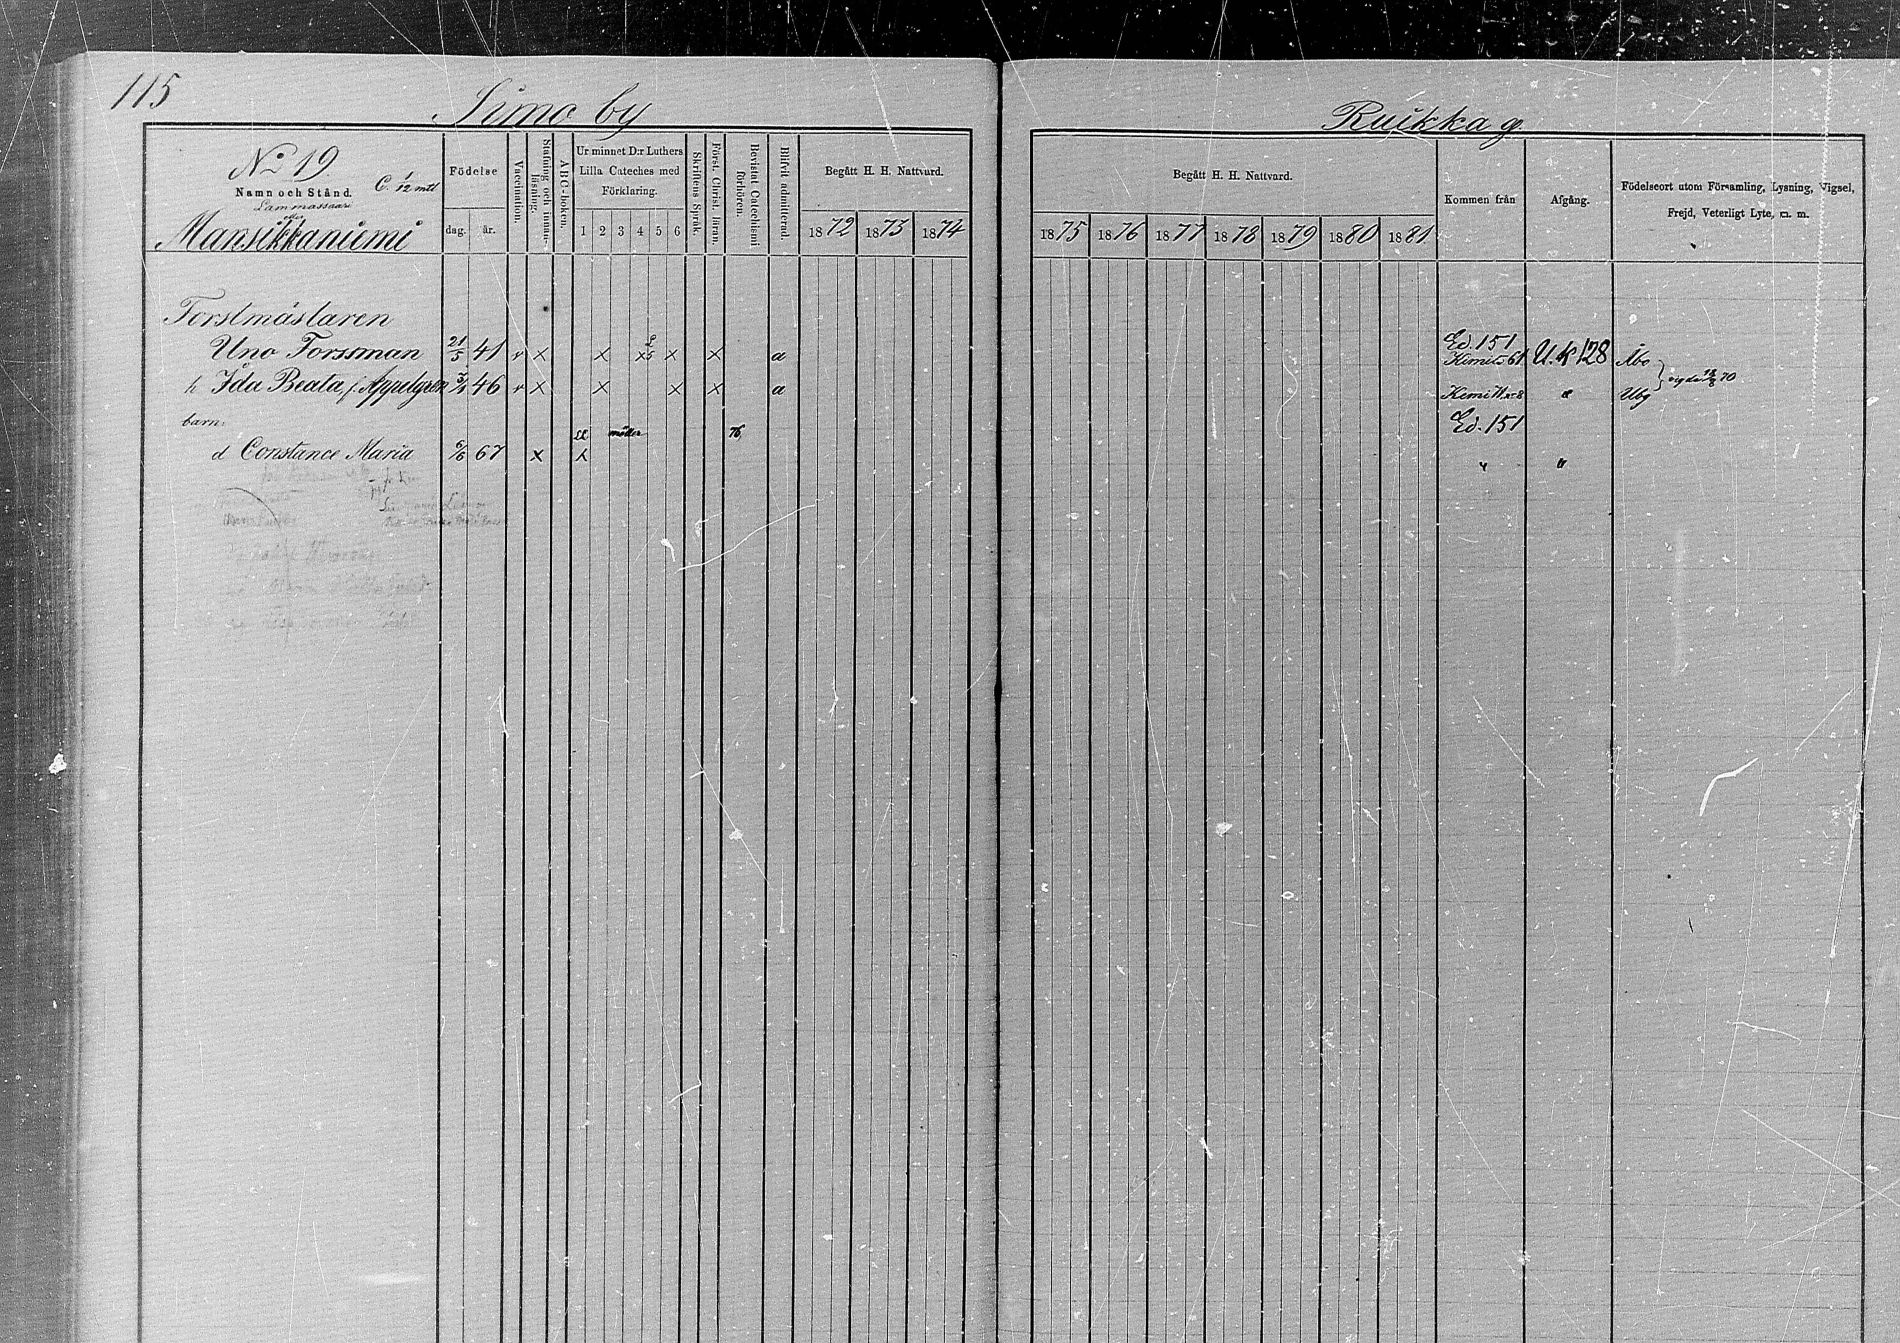 115
Simo by
Ruikka g.
No 19.
C. 1/12 mtl
Namn och Stånd.
Lammassaari
eller
Mansikkaniemi
Födelse
dag. år.
Vaccination.
Stafning och innanläsning.
ABC-boken.
Ur minnet D:r Luthers
Lilla Cateches med
Förklaring.
1 2 3 4 5 6
Skriftens Språk.
Först. Christ. läran.
Bevistat Catechismi förhören.
Blifvit admitterad.
Begått H. H. Nattvard.
1872 1873 1874
Begått H. H. Nattvard.
1875 1876 1877 1878 1879 1880 1881
Kommen från
Afgång.
Födelseort utom Församling, Lysning, Vigsel,
Frejd, Veterligt Lyte, m. m.
Forstmästaren
Ed. 151
Uno Forssman 21/5 41 v x x x 5 x x a Kimito 61 U. k 128 Åbo
h Ida Beata, f. Appelgren 46 v x x x x a Kemi Ubg
barn:
76
Ed. 151
d Constance Maria 6/6 67 x x " "